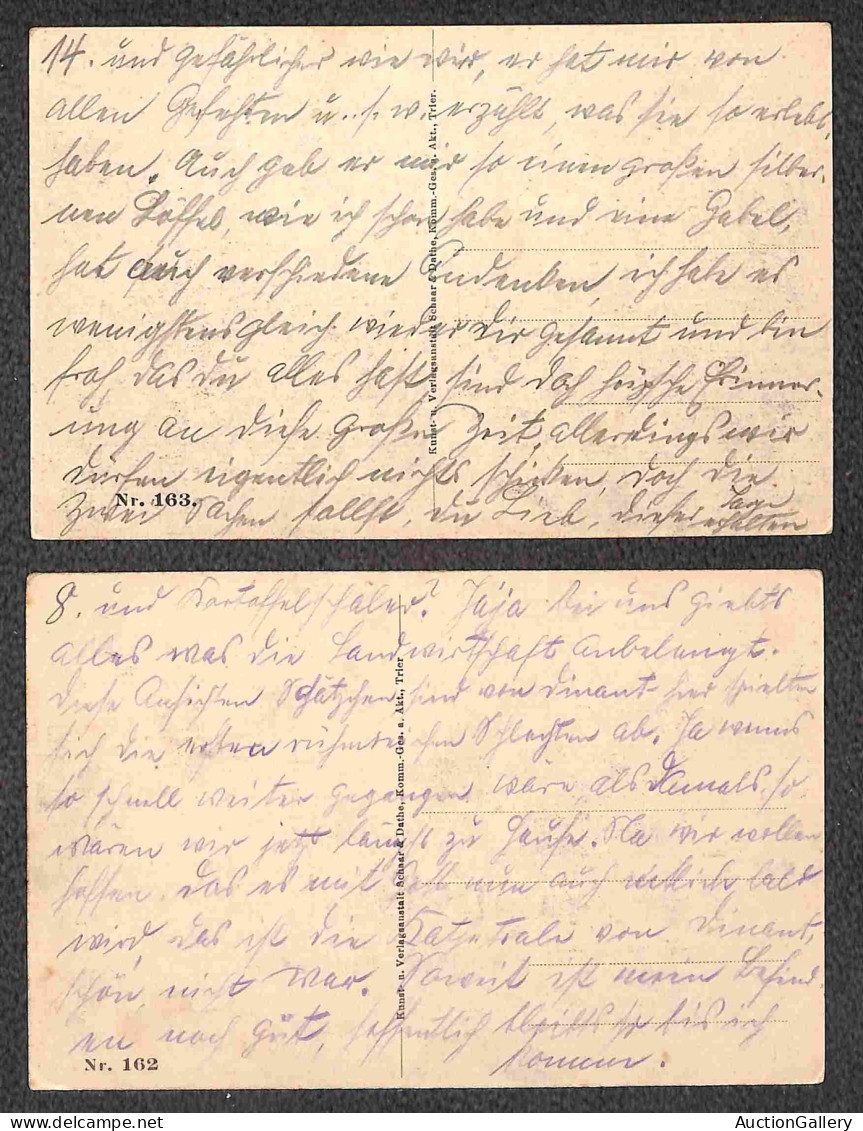 14. und gefährlicher wie wir, er hat mir von
allen Gefechten u. s. w. erzählt, was sie so erlebt
haben. Auch gab er mir so einen großen silber-
nen Löffel, wie ich schon habe und eine Gabel,
hat auch verschiedene Andenken, ich habe es
wenigstens gleich wieder Dir gesannt und bin
froh, das du alles hast, sind doch hüpsche Erinner-
ung an diese große Zeit, allerdings wir
dürfen eigentlich nichts schicken, doch die
zwei Sachen sollst, du Lieb, dieser Tage
erhalten
Nr. 163.
Kunst- u. Verlagsanstalt Schaar & Dathe, Komm.-Ges. a. Akt., Trier.
8. und Kartoffelschäler? Jaja bei uns giebts
alles was die Landwirtschaft anbelangt.
Diese Ansichten Schätzchen sind von Dinant hier spielten
sich die ersten ruhmreichen Schlachten ab. Ja wenns
so schnell weiter gegangen wäre, als damals, so
wären wir jetzt längst zu Hause. Na wir wollen
hoffen, das es mit Gott nun auch bald
wird, das ist die Katzetrale von Dinant,
schön, nicht war. Soweit ist mein Befind-
en noch gut, hoffentlich bleibts so bis ich
komme.
Nr. 162
Kunst- u. Verlagsanstalt Schaar & Dathe, Komm.-Ges. a. Akt., Trier
AuctionGallery